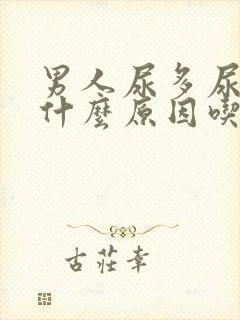 男人尿多尿
什麼原因喫
古莊幸